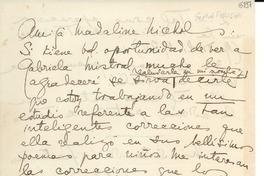 Amiga Madaline Nichols:
Si tiene Ud. oportunidad de ver a
Gabriela Mistral, mucho le
(saludarla en mi nombre)
agradeceré se sirva decirle
que estoy trabajando en un
estudio referente a las tan
inteligentes correcciones que
ella realizó en sus bellísimos
poemas para niños. Me interesan
las correcciones que los